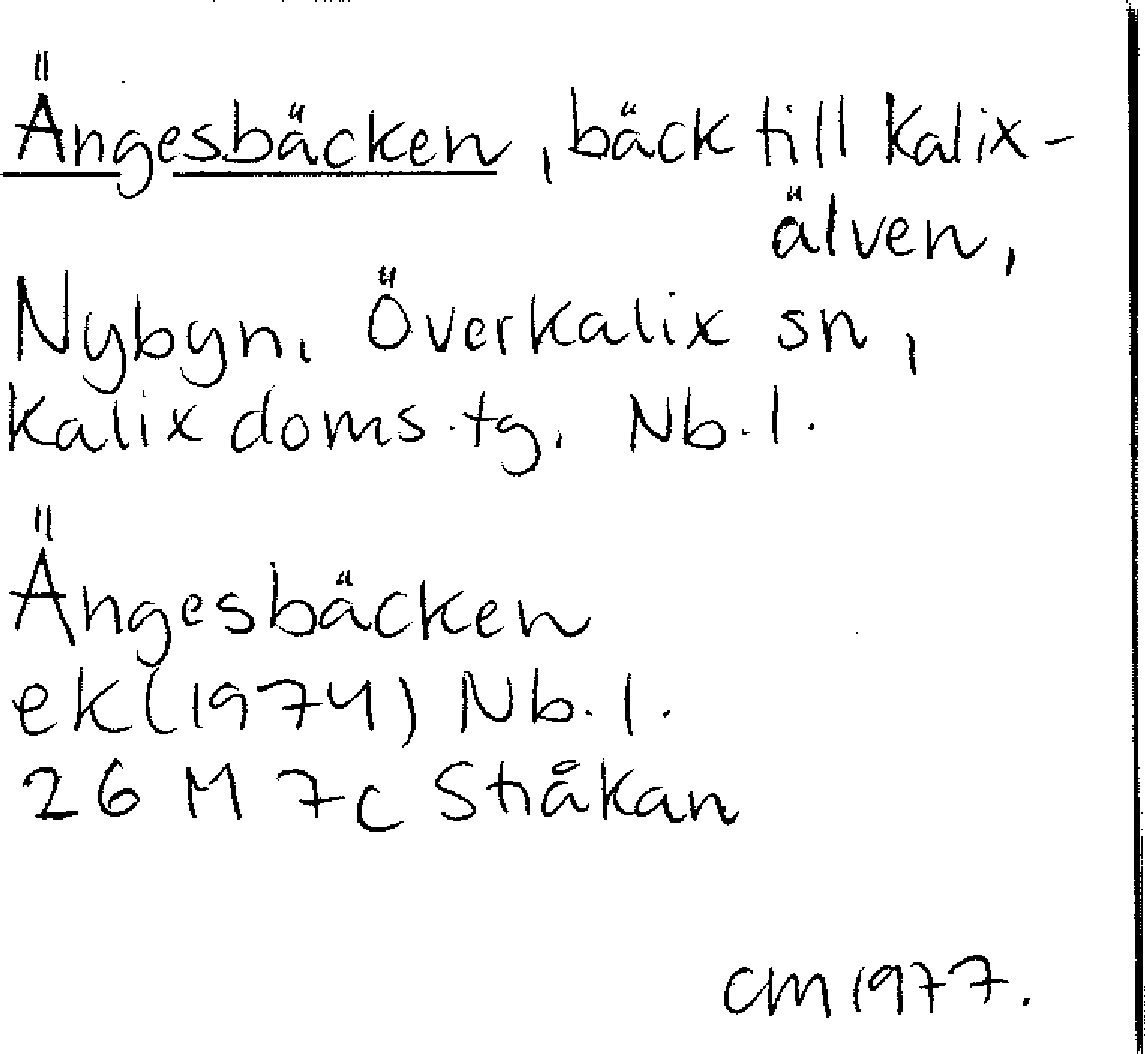 Ängesbäcken, bäck till Kalix-
älven,
Nybyn, Överkalix sn,
Kalix doms.tg. Nb.l.
Ängesbäcken
ek (1974) Nb.l.
26 M 7c Stråkan
CM 1977.